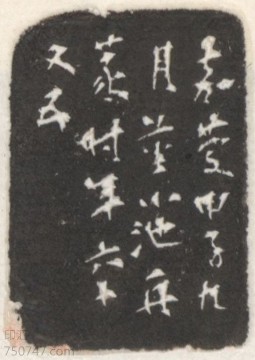 嘉慶甲子九
月董小池
篆时年六十
又五
750747.com